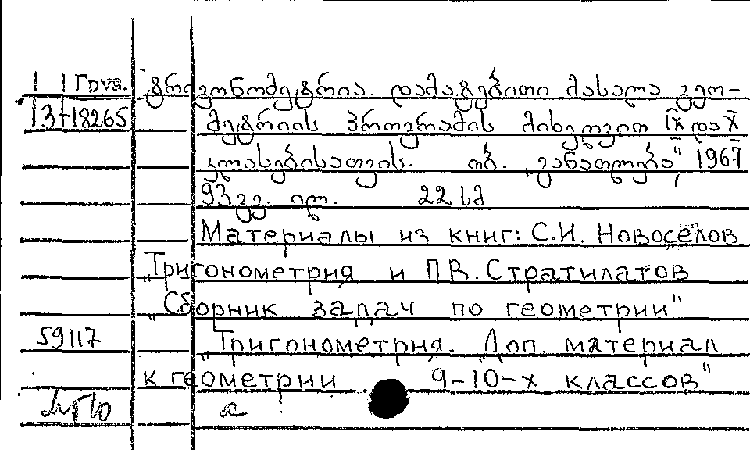 ტრიგონომეტრია. დამატებითი მასალა გეო-
13-18265 მეტრიის პროგრამის მიხედვით IX და X
კლასებისათვის. თბ. „განათლება", 1967
93 გვ. ილ. 22 სმ
Материалы из книг: С.И. Новоселов
„Тригонометрия и П.В. Стратилатов
„Сборник задач по геометрии"
59117 „Тригонометрия. Доп. материал
к геометрии 9-10-х классов"